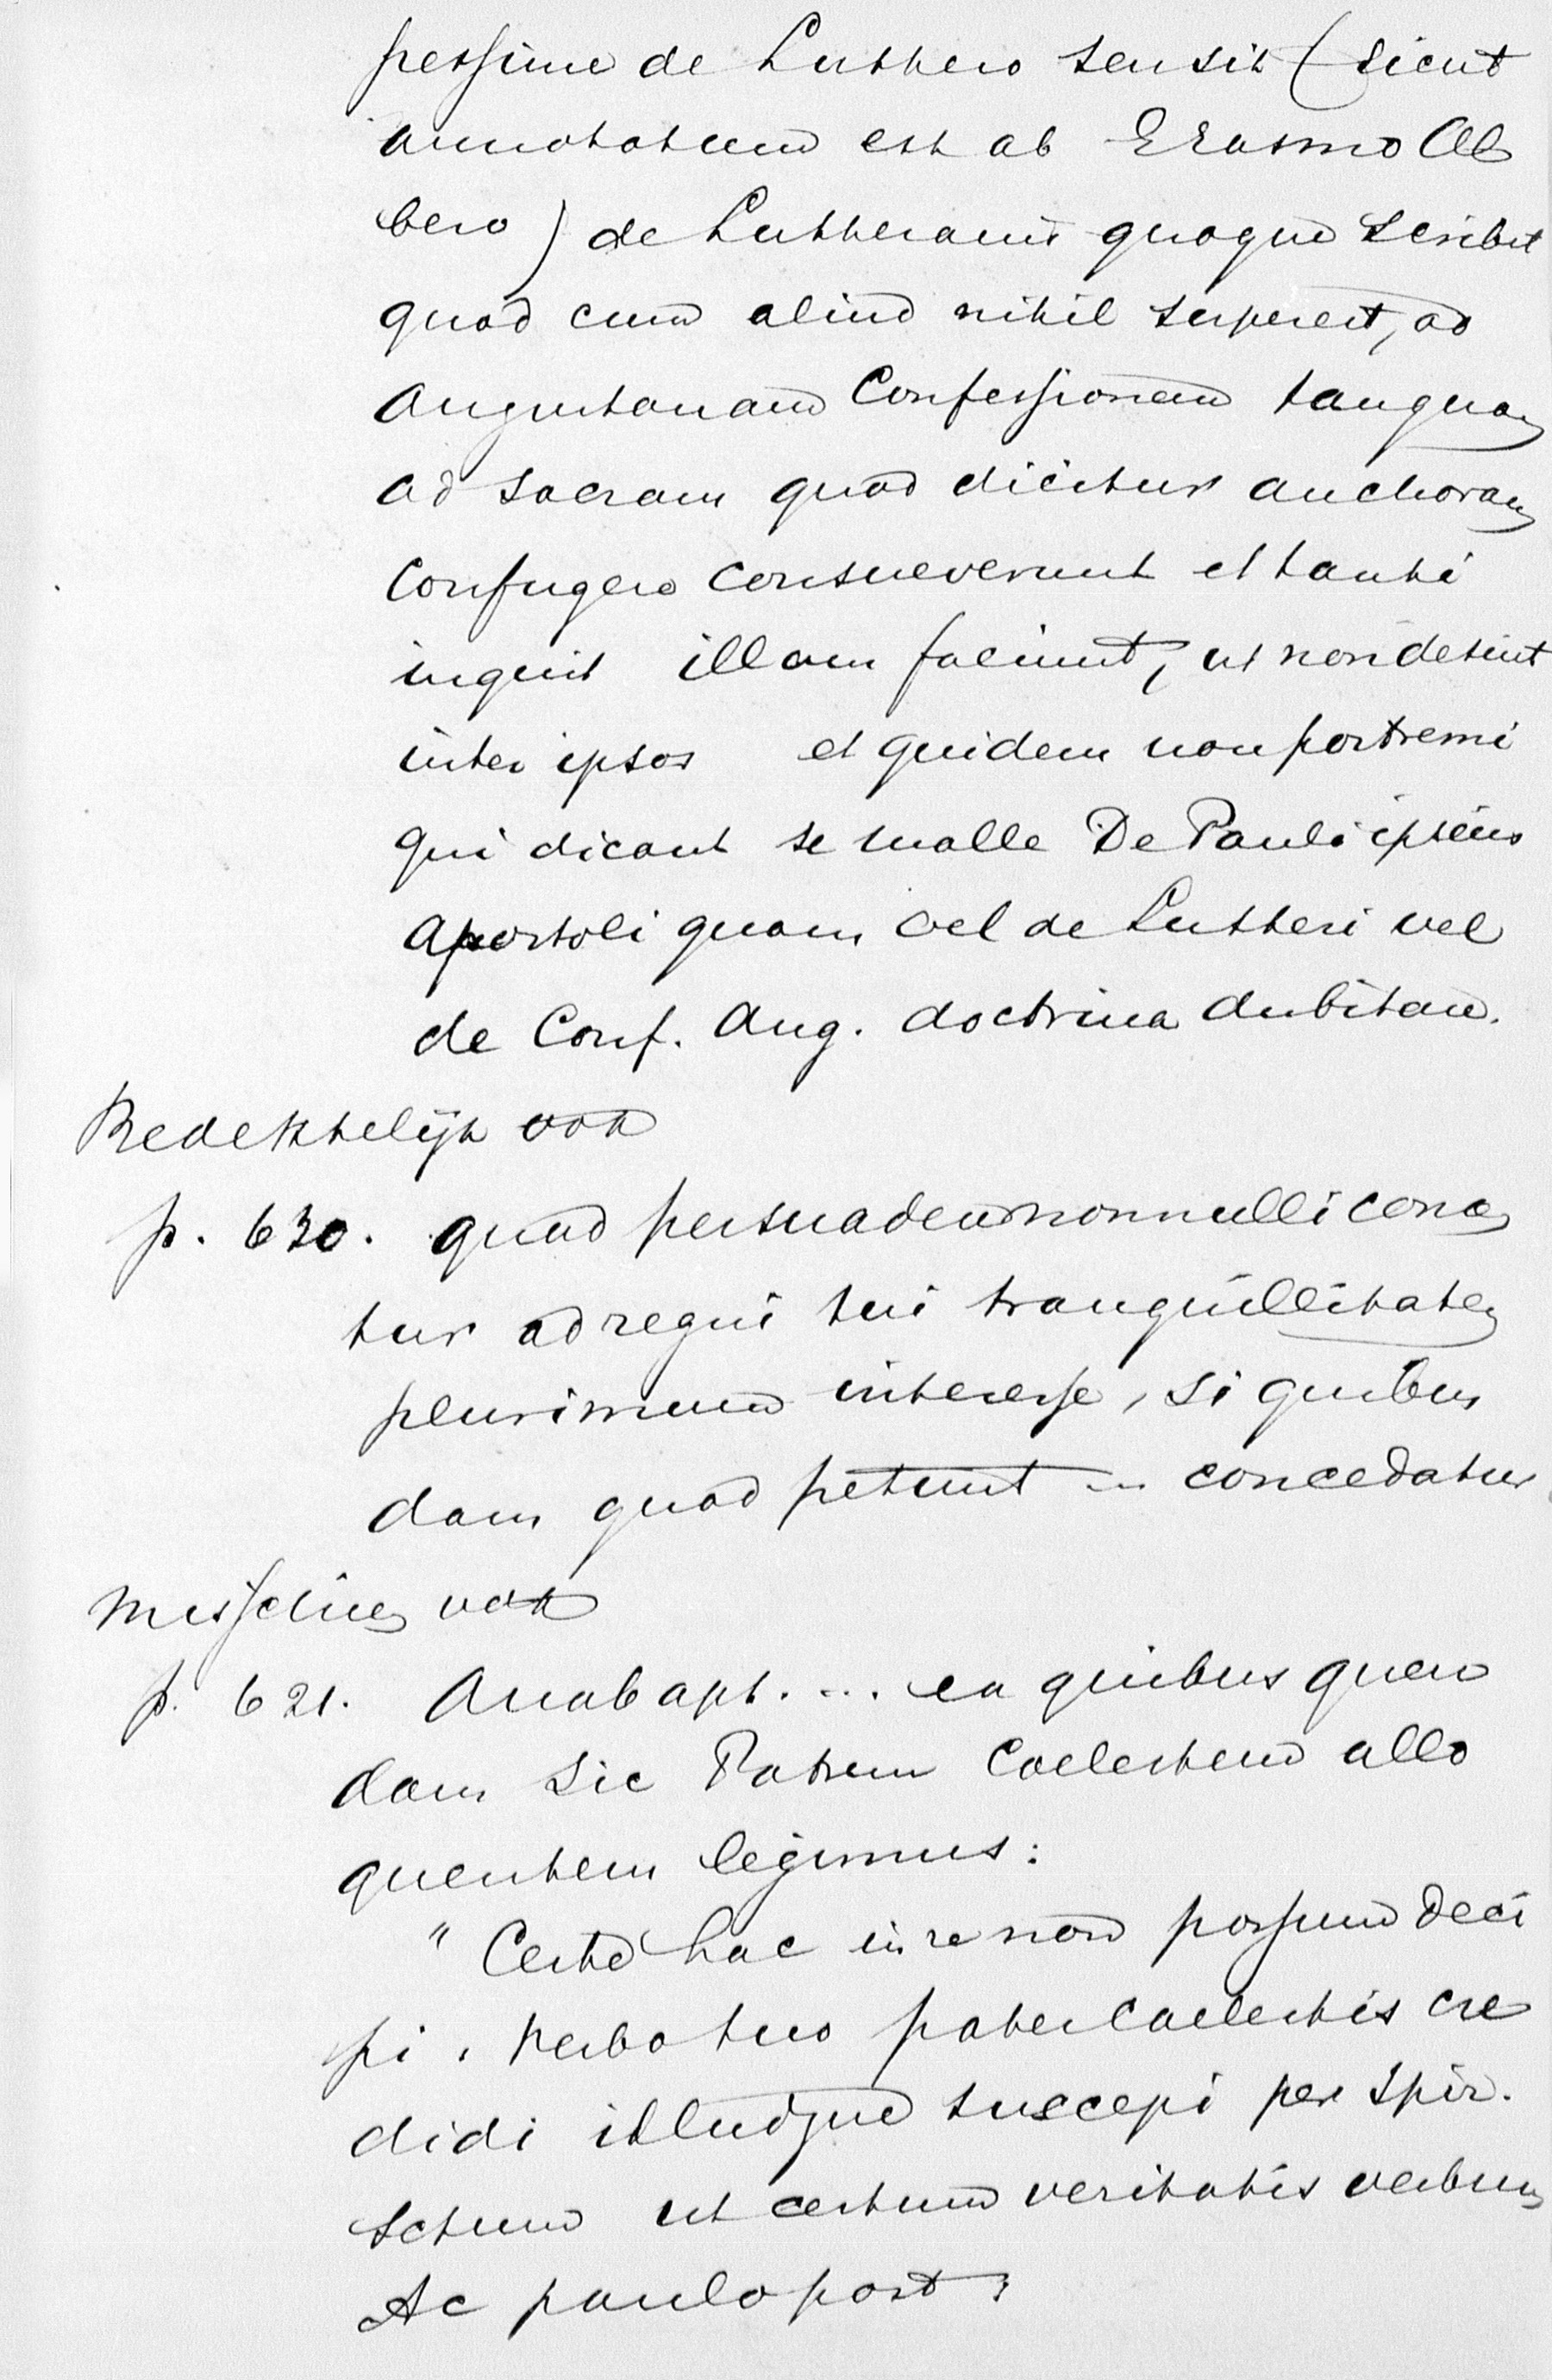 pessime de Luthero sensit (sicut
annotatum est ab Erasmo Al
bero) de Lutheranis quoque scribit
quod cum aliud nihil superest, ad
Augustanam Confessionem tanquam
ad sacram quod dicitur anchoram
confugere consueverunt et tanti
inquit illam faciunt, ut non desint
inter ipsos et quidem non postremi
qui dicant se malle De Pauli ipsius
apostoli quam vel de Lutheri vel
de Conf. Aug. doctrina dubitare.
Redekkelijk ook
p. 630. quod persuadere nonnulli cona
tur ad regni sui tranquillitatem
plurimum interesse, si quibus
dam quod petunt ... concedatur
Misschien ook
p. 621. Anabapt. ... ea quibus quen
dam sic Patrem Coelestem allo
quentem legimus:
" Certe hac in re non possum deci
pi, verbo tuo pater Caelestis cre
didi illudque suscepi per Spir.
Sctum ut certum veritatis verbum
Ac paulo post: